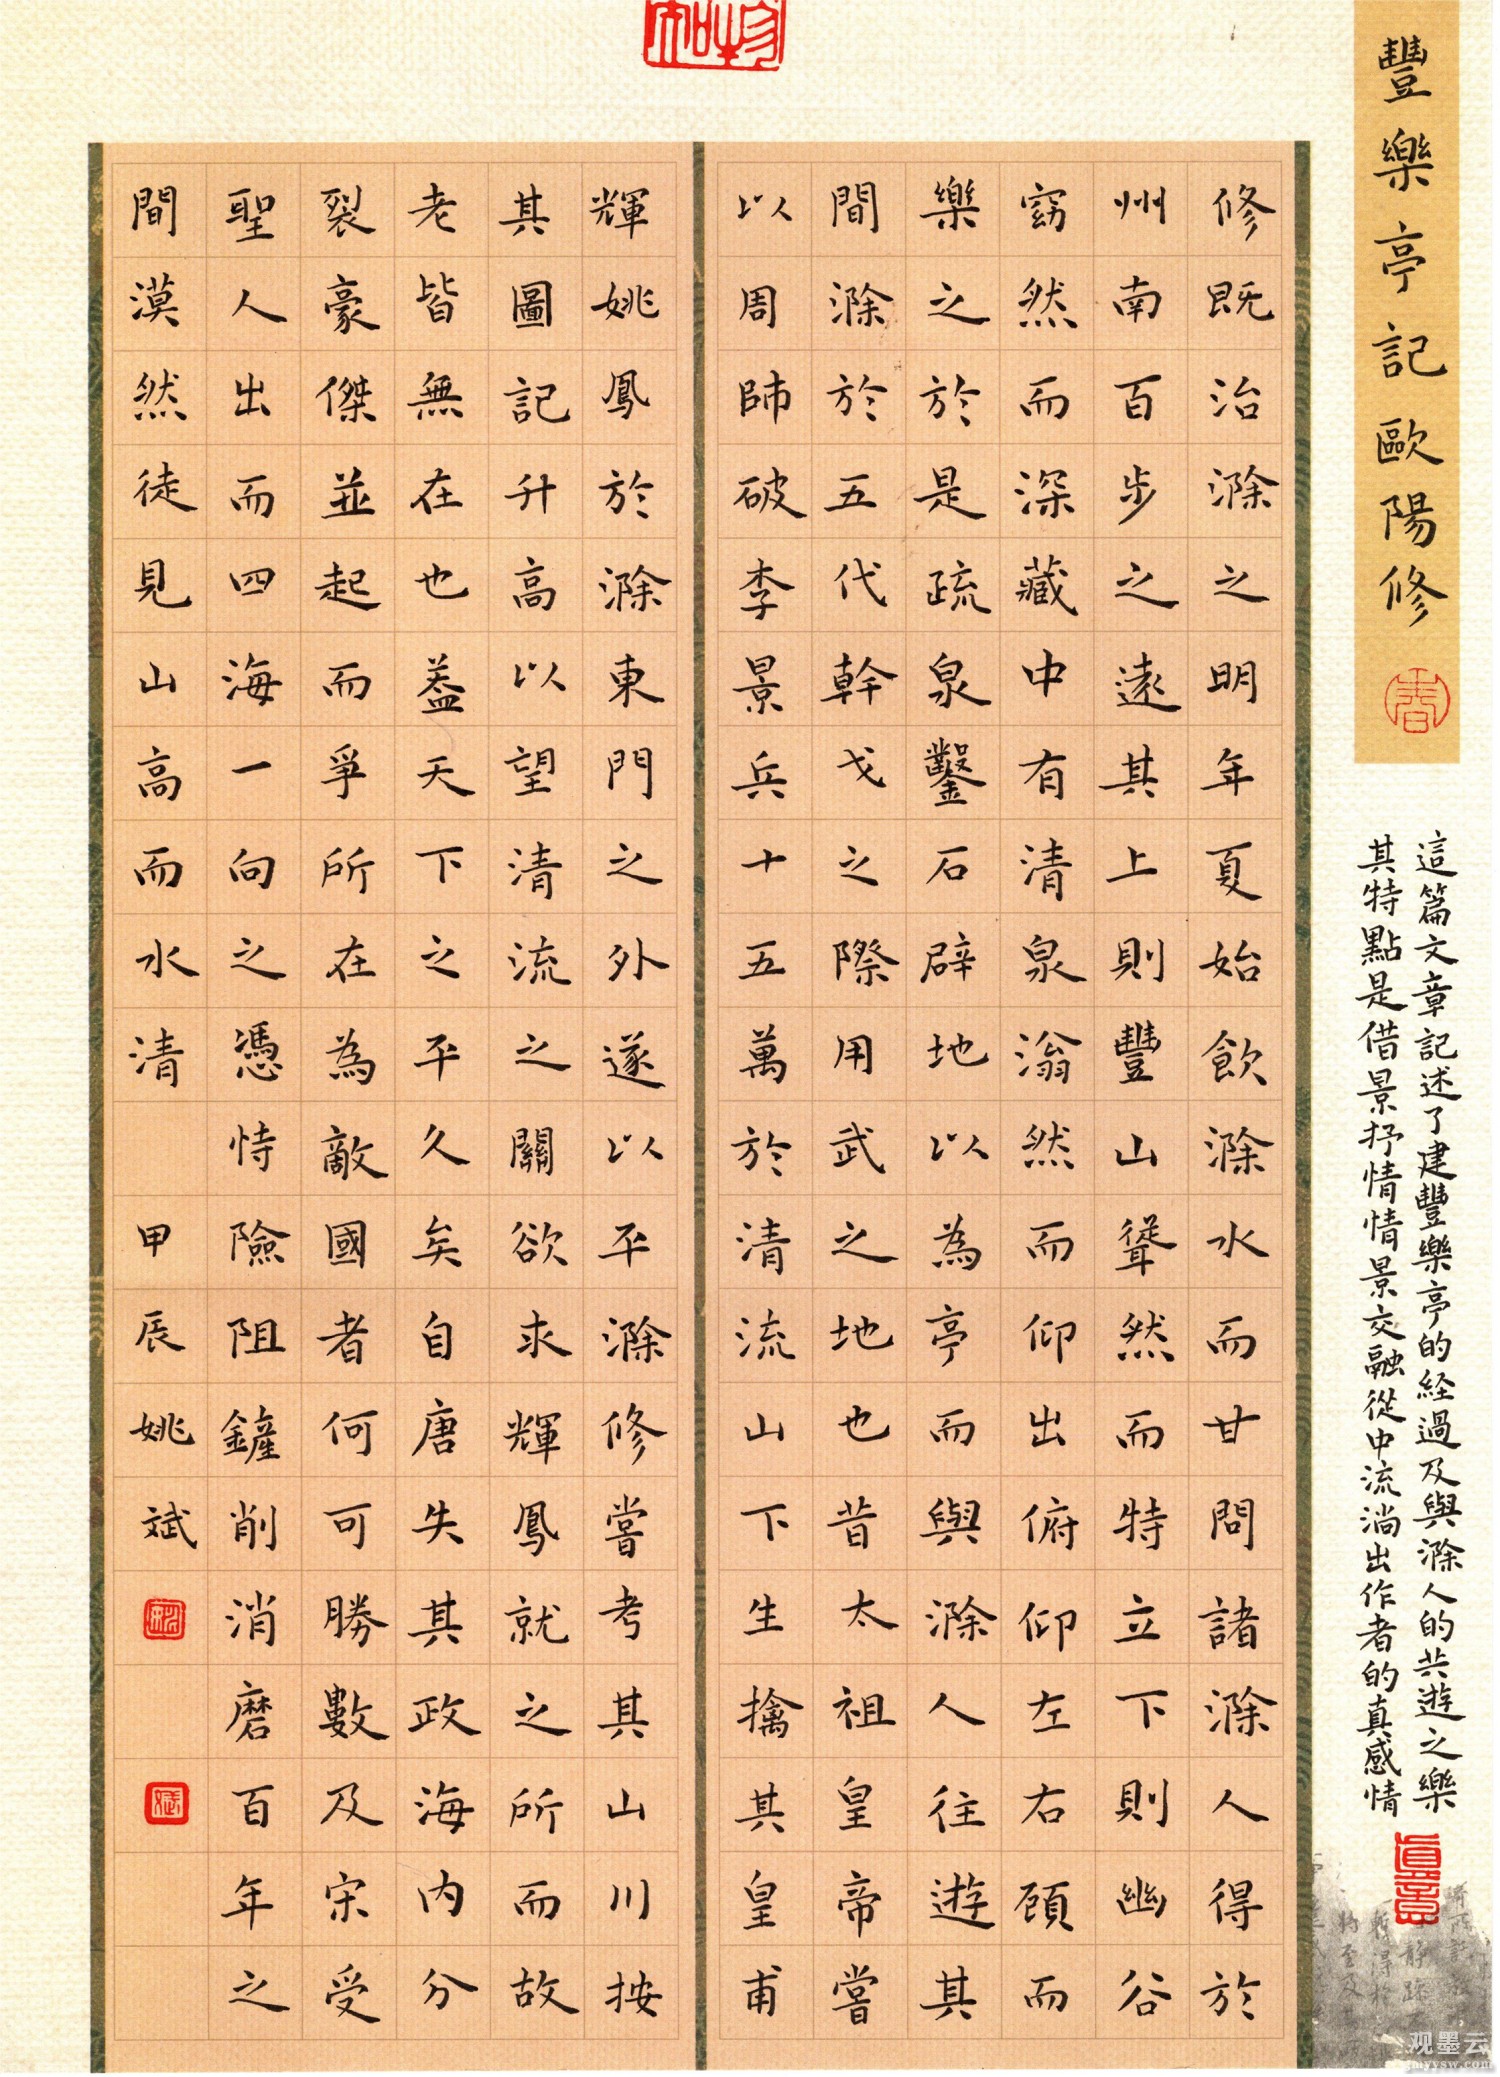 豐樂亭記歐陽修
這篇文章記述了建豐樂亭的経過及與滁人的共遊之樂
其特點是借景抒情情景交融從中流淌出作者的真感情
修既治滁之明年夏始飲滁水而甘問諸滁人得於
州南百步之遠其上則豐山聳然而特立下則幽谷
窈然而深藏中有清泉滃然而仰出俯仰左右顧而
樂之於是疏泉鑿石辟地以為亭而與滁人往遊其
間滁於五代幹戈之際用武之地也昔太祖皇帝嘗
以周師破李景兵十五萬於清流山下生擒其皇甫
輝姚鳳於滁東門之外遂以平滁修嘗考其山川按
其圖記升高以望清流之關欲求輝鳳就之所而故
老皆無在也蓋天下之平久矣自唐失其政海內分
裂豪傑並起而爭所在為敵國者何可勝數及宋受
聖人出而四海一向之憑恃險阻鏟削消磨百年之
間漠然徒見山高而水清 甲辰姚斌
观墨云